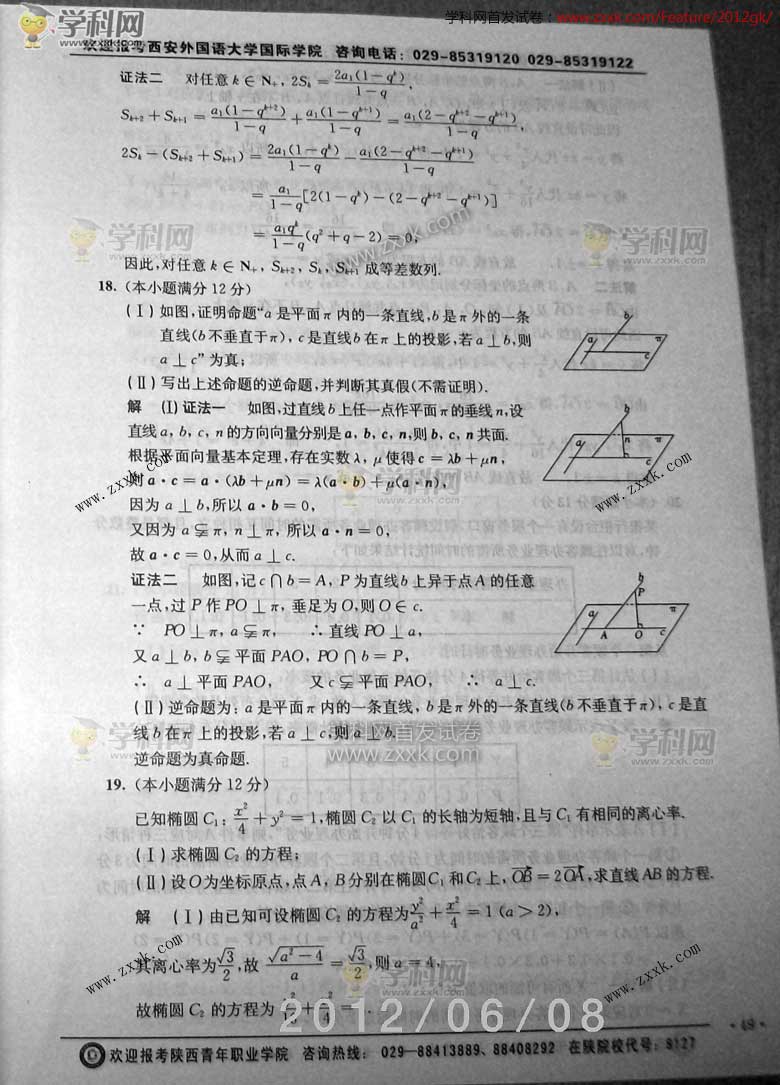 学科网首发试卷：www.zxxk.com/Feature/2012gk/
学科网
www.zxxk.com
欢迎报考西安外国语大学国际学院 咨询电话：029-85319120 029-85319122
证法二 对任意 k∈N₊, 2Sₖ = 2a₁(1-qᵏ)/(1-q),
Sₖ₊₂ + Sₖ₊₁ = a₁(1-qᵏ⁺²)/(1-q) + a₁(1-qᵏ⁺¹)/(1-q) = a₁(2-qᵏ⁺²-qᵏ⁺¹)/(1-q)
2Sₖ - (Sₖ₊₂ + Sₖ₊₁) = 2a₁(1-qᵏ)/(1-q) - a₁(2-qᵏ⁺²-qᵏ⁺¹)/(1-q)
= a₁/(1-q)[2(1-qᵏ)-(2-qᵏ⁺²-qᵏ⁺¹)]
= a₁qᵏ/(1-q)(q²+q-2) = 0,
因此,对任意 k∈N₊, Sₖ₊₂, Sₖ, Sₖ₊₁ 成等差数列.
18. (本小题满分12分)
(Ⅰ) 如图,证明命题“a 是平面 π 内的一条直线,b 是 π 外的一条
直线(b 不垂直于 π), c 是直线 b 在 π 上的投影,若 a⊥b,则
a⊥c”为真;
(Ⅱ) 写出上述命题的逆命题,并判断其真假(不需证明).
解 (Ⅰ)证法一 如图,过直线 b 上任一点作平面 π 的垂线 n,设
直线 a, b, c, n 的方向向量分别是 a, b, c, n,则 b, c, n 共面.
根据平面向量基本定理,存在实数 λ, μ 使得 c = λb + μn,
则 a·c = a·(λb + μn) = λ(a·b) + μ(a·n),
因为 a⊥b,所以 a·b = 0,
又因为 a⫋π, n⊥π, 所以 a·n = 0,
故 a·c = 0,从而 a⊥c.
证法二 如图,记 c∩b = A, P 为直线 b 上异于点 A 的任意
一点,过 P 作 PO⊥π, 垂足为 O,则 O∈c.
∵ PO⊥π, a⫋π, ∴ 直线 PO⊥a,
又 a⊥b, b⫋平面 PAO, PO∩b = P,
∴ a⊥平面 PAO, 又 c⫋平面 PAO, ∴ a⊥c.
(Ⅱ) 逆命题为: a 是平面 π 内的一条直线, b 是 π 外的一条直线(b 不垂直于 π), c 是直
线 b 在 π 上的投影,若 a⊥c,则 a⊥b.
逆命题为真命题.
19. (本小题满分12分)
已知椭圆 C₁: x²/4 + y² = 1,椭圆 C₂ 以 C₁ 的长轴为短轴,且与 C₁ 有相同的离心率.
(Ⅰ) 求椭圆 C₂ 的方程;
(Ⅱ) 设 O 为坐标原点,点 A, B 分别在椭圆 C₁ 和 C₂ 上, OB = 2OA,求直线 AB 的方程.
解 (Ⅰ) 由已知可设椭圆 C₂ 的方程为 y²/a² + x²/4 = 1 (a > 2),
其离心率为 √3/2,故 √(a²-4)/a = √3/2,则 a = 4,
故椭圆 C₂ 的方程为
2012/06/08
·49·
欢迎报考陕西青年职业学院 咨询热线： 029-88413889、88408292 在陕院校代号：8127